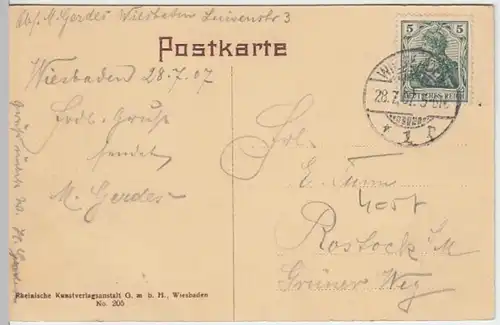 Abs. M. Gerdes Wiesbaden Luisenstr 3
Postkarte
5 5
DEUTSCHES REICH
28.7.07.
Wiesbaden 28.7.07
Frdl. Gruß
sendet
M. Gerdes
Frl.
E. Timm
Rostock i/M
Grüner Weg
Rheinische Kunstverlagsanstalt G. m b. H., Wiesbaden
No. 205